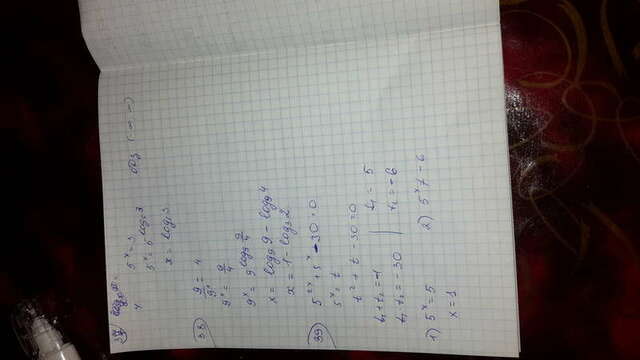 5ˣ = 3
5ˣ = 5^log₅3
x = log₅3
38
9/9ˣ = 4
9ˣ = 9/4
9ˣ = 9^log₉ 9/4
x = log₉9 - log₉4
x = 1 - log₃2
39
5²ˣ + 5ˣ - 30 = 0
5ˣ = t
t² + t - 30 = 0
t₁ + t₂ = -1 t₁ = 5
t₁ t₂ = -30 t₂ = -6
1) 5ˣ = 5 2) 5ˣ ≠ -6
x = 1